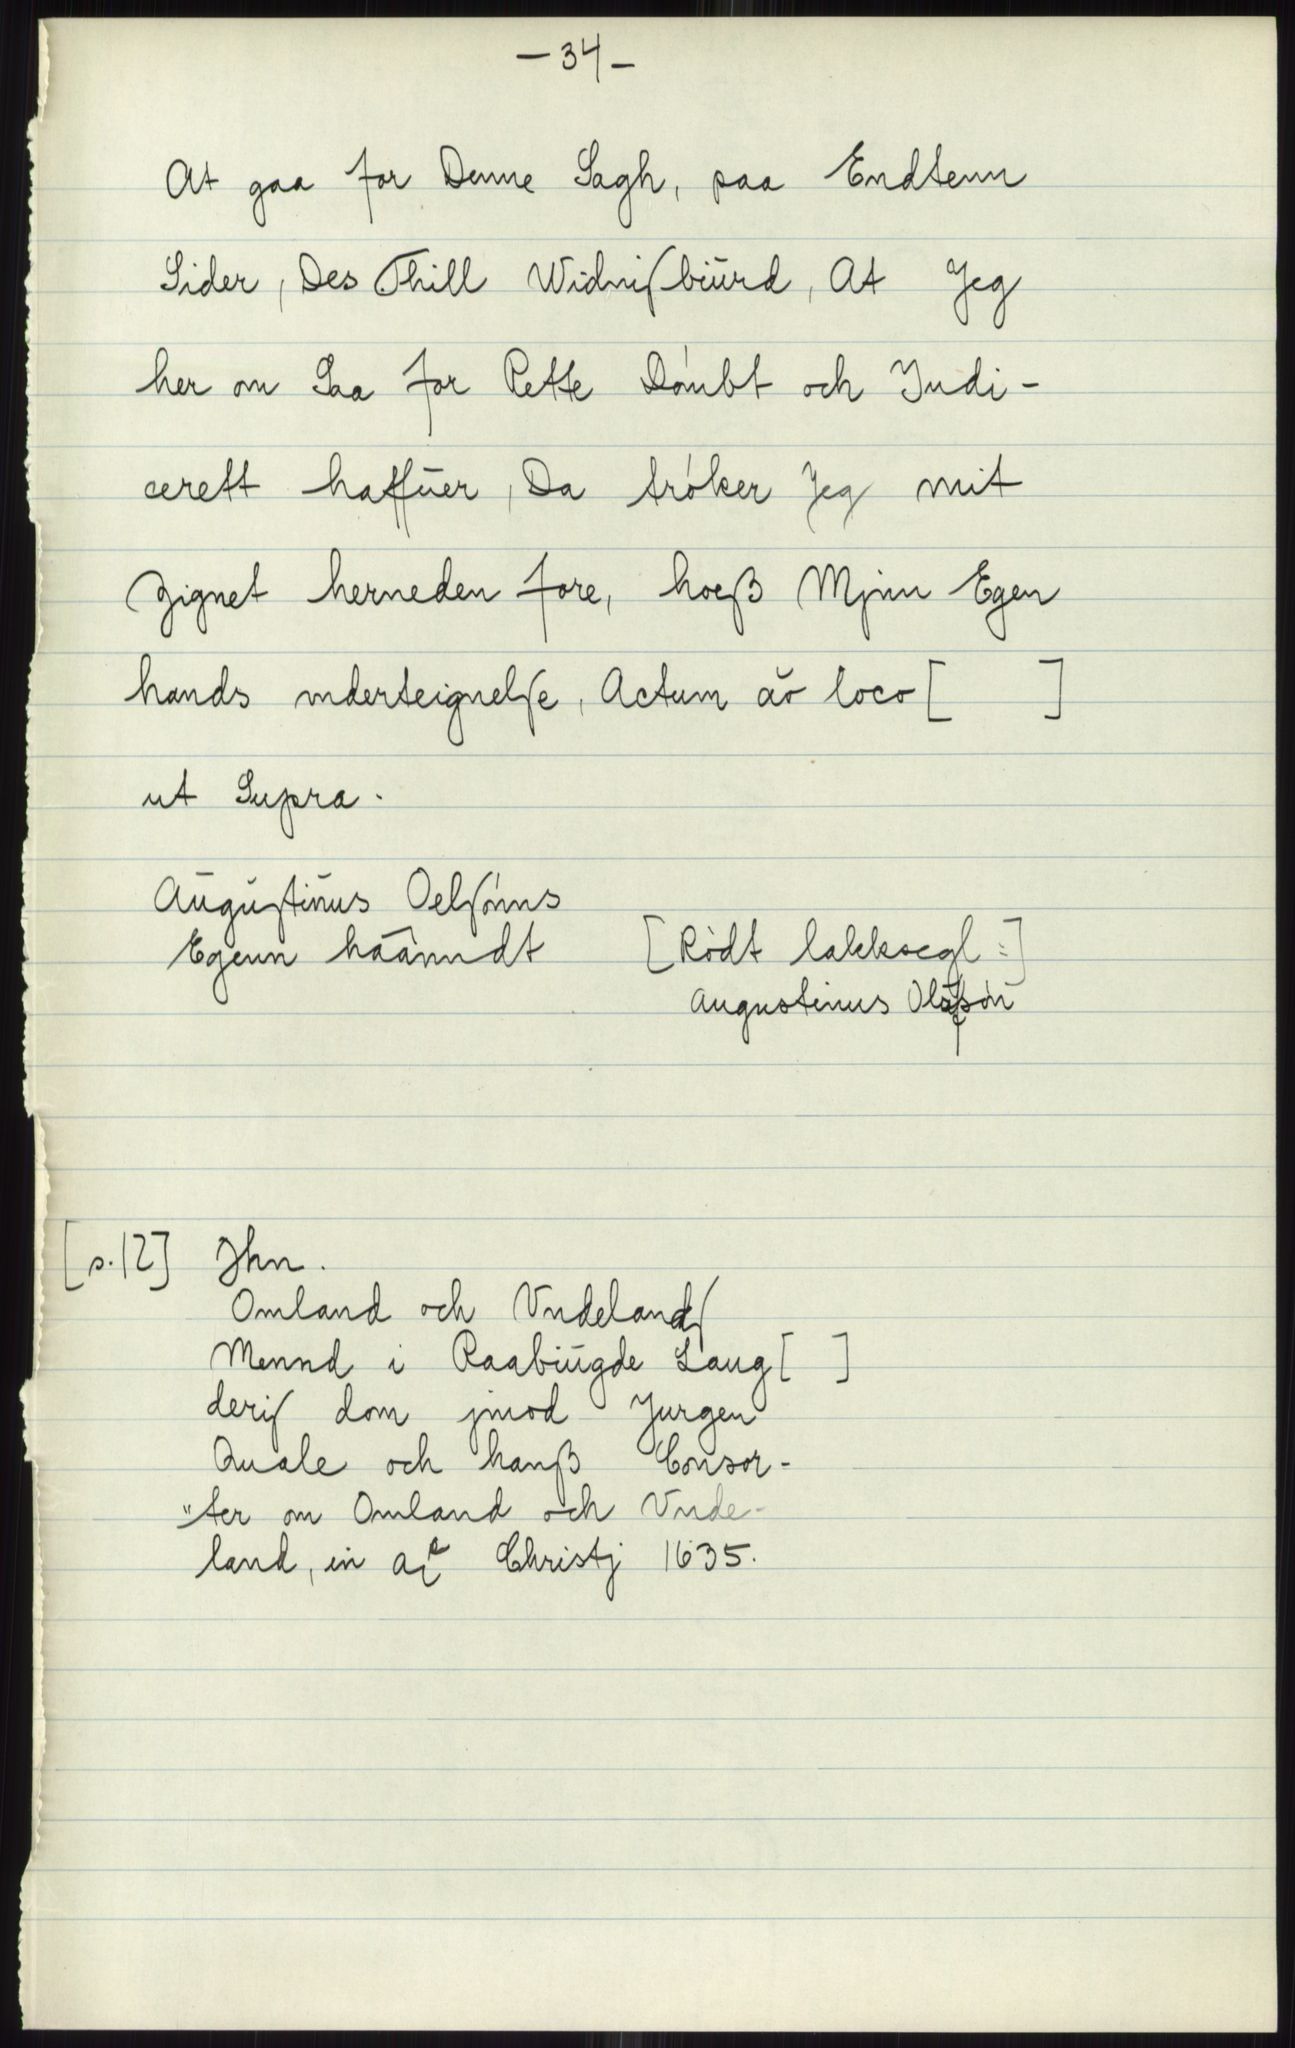 — 34 —
At gaa for Denne Sagh, paa Endtenn
Sider, Des Thill Widnißbūrd, At Jeg
her om Saa for Rette Dómbt och Judi-
cerett haffūer, Da tróker Jeg mit
Zignet herneden fore, hoeß Mjnn Egen
hands vnderteignelſe, Actum
loco [ ]
ut Supra.
Aūgūſtinūs Oelſónns
Egenn håånndt [Rødt lakksegl:]
Augustinus
[s. 12] Jhn.
Omland och Vndelandſ
Mennd i Raabiūgde Laug [ ]
deriſ dom jmod Jurgen
Quale och hanß Consor-
"ter om Omland och Vnde-
land, in Christj 1635.